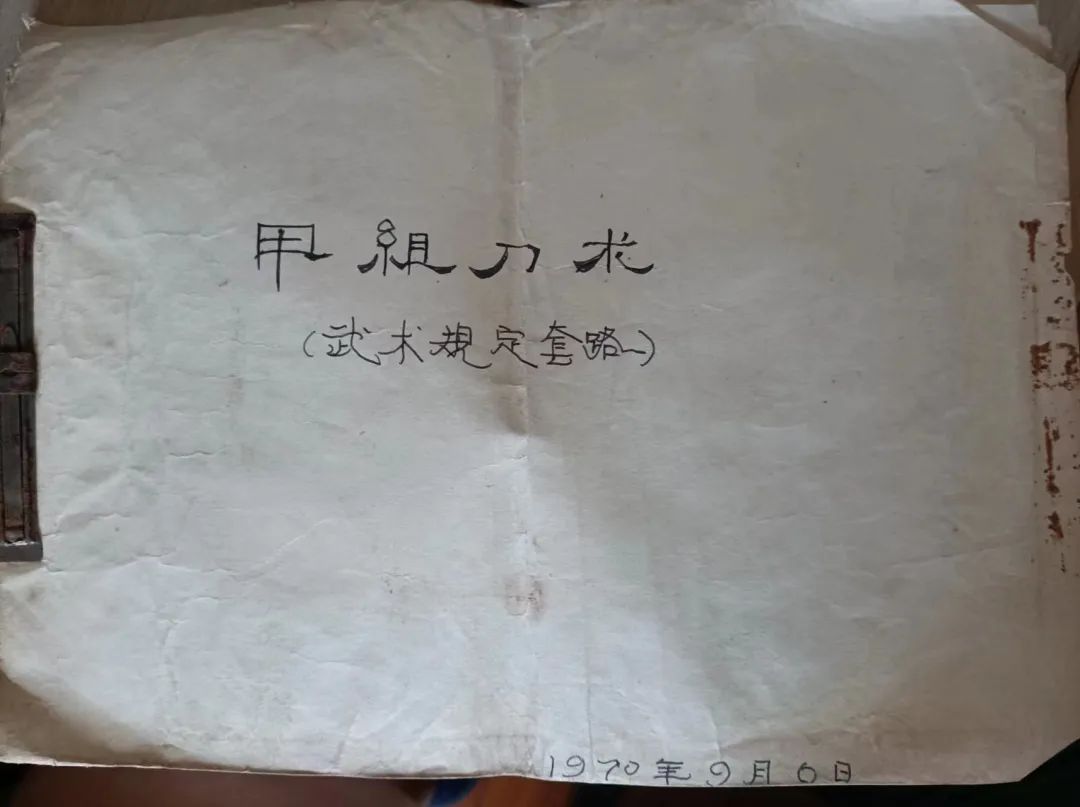 甲組刀术
(武术規定套路一)
1970年9月6日